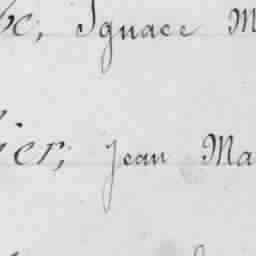 bc, Ignace M
ier; Jean Ma